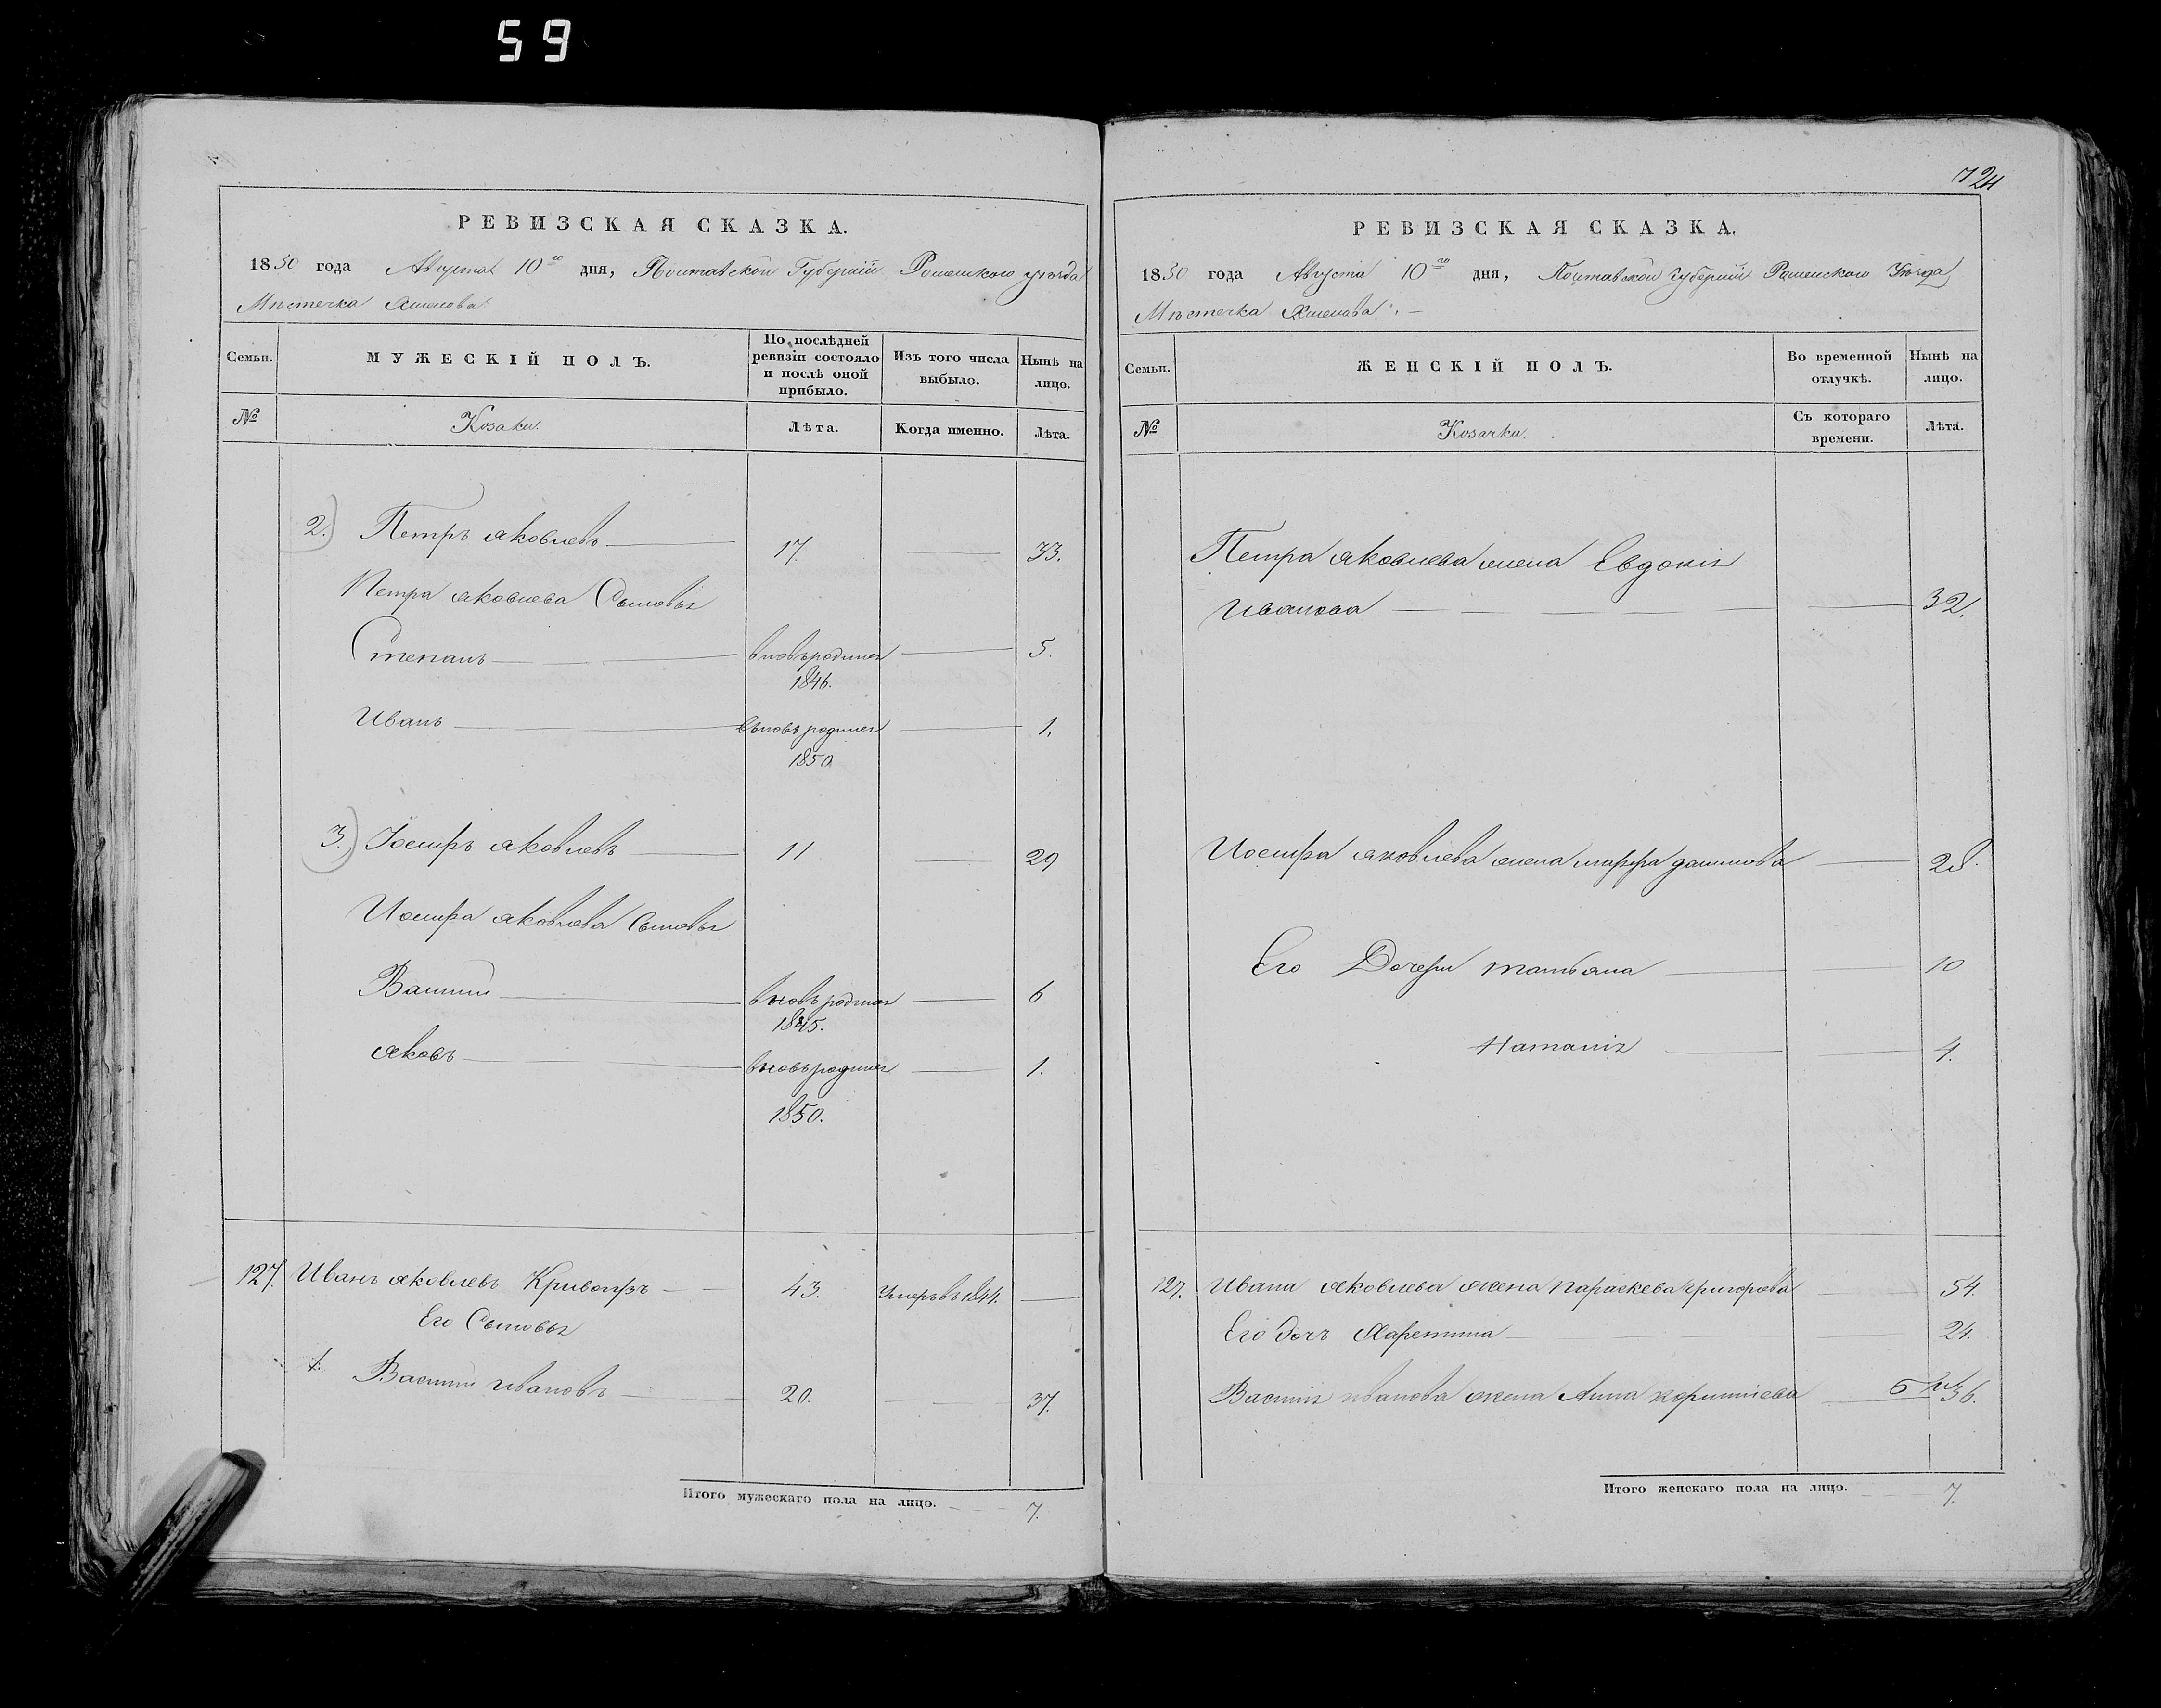 59
РЕВИЗСКАЯ СКАЗКА.
1850 года Августа 10го дня, Полтавской Губерніи Роменского уѣзда
Мѣстечка Хмелова
Семьи.
МУЖЕСКІЙ ПОЛЪ.
По послѣдней ревизіи состояло и послѣ оной прибыло.
Изъ того числа выбыло.
Нынѣ на лицо.
№
Козаки.
Лѣта.
Когда именно.
Лѣта.
2. Петръ Яковлевъ 17. 33.
Петра Яковлева Сыновья
Степанъ вновьродился 5.
1846.
Иванъ вновь родился 1.
1850
3. Іосифъ Яковлевъ 11 29
Иосифа Яковлева Сыновья
Василий вновь родился 6
1845.
Яковъ вновь родился 1.
1850.
127. Иванъ Яковлевъ 43. Умеръ въ 1844.
Его Сыновья
1. Василий Ивановъ 20. 37.
Итого мужескаго пола на лицо. 7.
724
РЕВИЗСКАЯ СКАЗКА.
1850 года Августа 10го дня, Полтавской Губерніи Роменского Уѣзда
Мѣстечка Хмелова
Семьи.
ЖЕНСКІЙ ПОЛЪ.
Во временной отлучкѣ.
Нынѣ на лицо.
№
Козачки.
Съ котораго времени.
Лѣта.
Петра Яковлева жена Евдокія
Иванова 32.
Иосифа Яковлева жена Марфа Данилова 28.
Его Дочери Татьяна 10
Наталія 4.
127. Ивана Яковлева жена Параскева Григорова 54.
Его дочь Харетина 24.
Василія Иванова жена Анна 36.
Итого женскаго пола на лицо. 7.